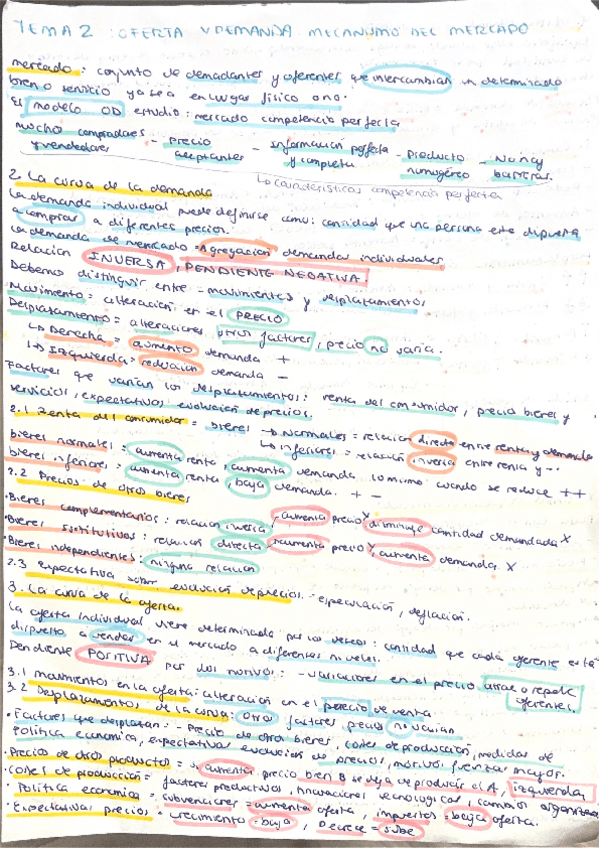 TEMA 2 : OFERTA Y DEMANDA. MECANISMO DEL MERCADO
mercado : conjunto de demadantes y oferentes que intercambian un determinado
bien o servicio ya sea en lugar físico o no.
El modelo OD estudio : mercado competencia perfecta
mucho compradores - precio - información perfecta - producto - No hay
y vendedores aceptantes y completa homogéneo barreras.
↳ características competencia perfecta
2. La curva de la demanda
La demanda individual puede definirse como: cantidad que una persona esta dispuesta
a comprar a diferentes precios.
La demanda de mercado = Agregación demandas individuales
Relacion INVERSA, PENDIENTE NEGATIVA.
Debemos distinguir entre - movimientos y desplazamientos
Movimiento = alteración en el PRECIO
Desplazamiento = alteraciones, otros factores, precio no varia.
↳ Derecha = aumento demanda +
↳ Izquierda = reduccion demanda -
Factores que varían los desplazamientos: renta del consumidor, precio bienes y
servicios, expectativas evolucion de precios.
2.1 Renta del consumidor = bienes → Normales = relación directa entre renta y demanda
↳ inferiores = relación inversa entre renta y --
bienes normales = aumenta renta, aumenta demanda lo mismo cuando se reduce ++
bienes inferiores = aumenta renta baja demanda. + -
2.2 Precios de otros bienes
· Bienes complementarios : relación inversa, aumenta precio Y disminuye cantidad demandada X
· Bienes sustitutivos : relación directa, aumenta precio Y, aumenta demanda X
· Bienes independientes : ninguna relación
2.3 Expectativa sobre evolución de precios. - especulación, deflación.
3. La curva de la oferta.
La oferta individual viene determinada por los : cantidad que cada oferente está
dispuesto a vender en el mercado a diferentes niveles.
Pendiente POSITIVA por dos motivos : - variaciones en el precio atrae o repele
oferentes.
3.1 movimientos en la oferta: alteración en el precio de venta.
3.2 Desplazamientos de la curva: Otros factores precio no varian
· Factores que desplazan : - Precio de otros bienes, costes de producción, medidas de
Política económica, expectativas evolución de precios, motivos fuerza mayor.
· Precios de otros productos = si aumenta precio bien B se deja de producir el A, izquierda,
· costes de producción = factores productivos, innovaciones tecnológicas, cambios
· Política económica = subvenciones = aumenta oferta, impuestos = baja oferta.
· Expectativas precios - crecimiento = baja, Decrece = sube